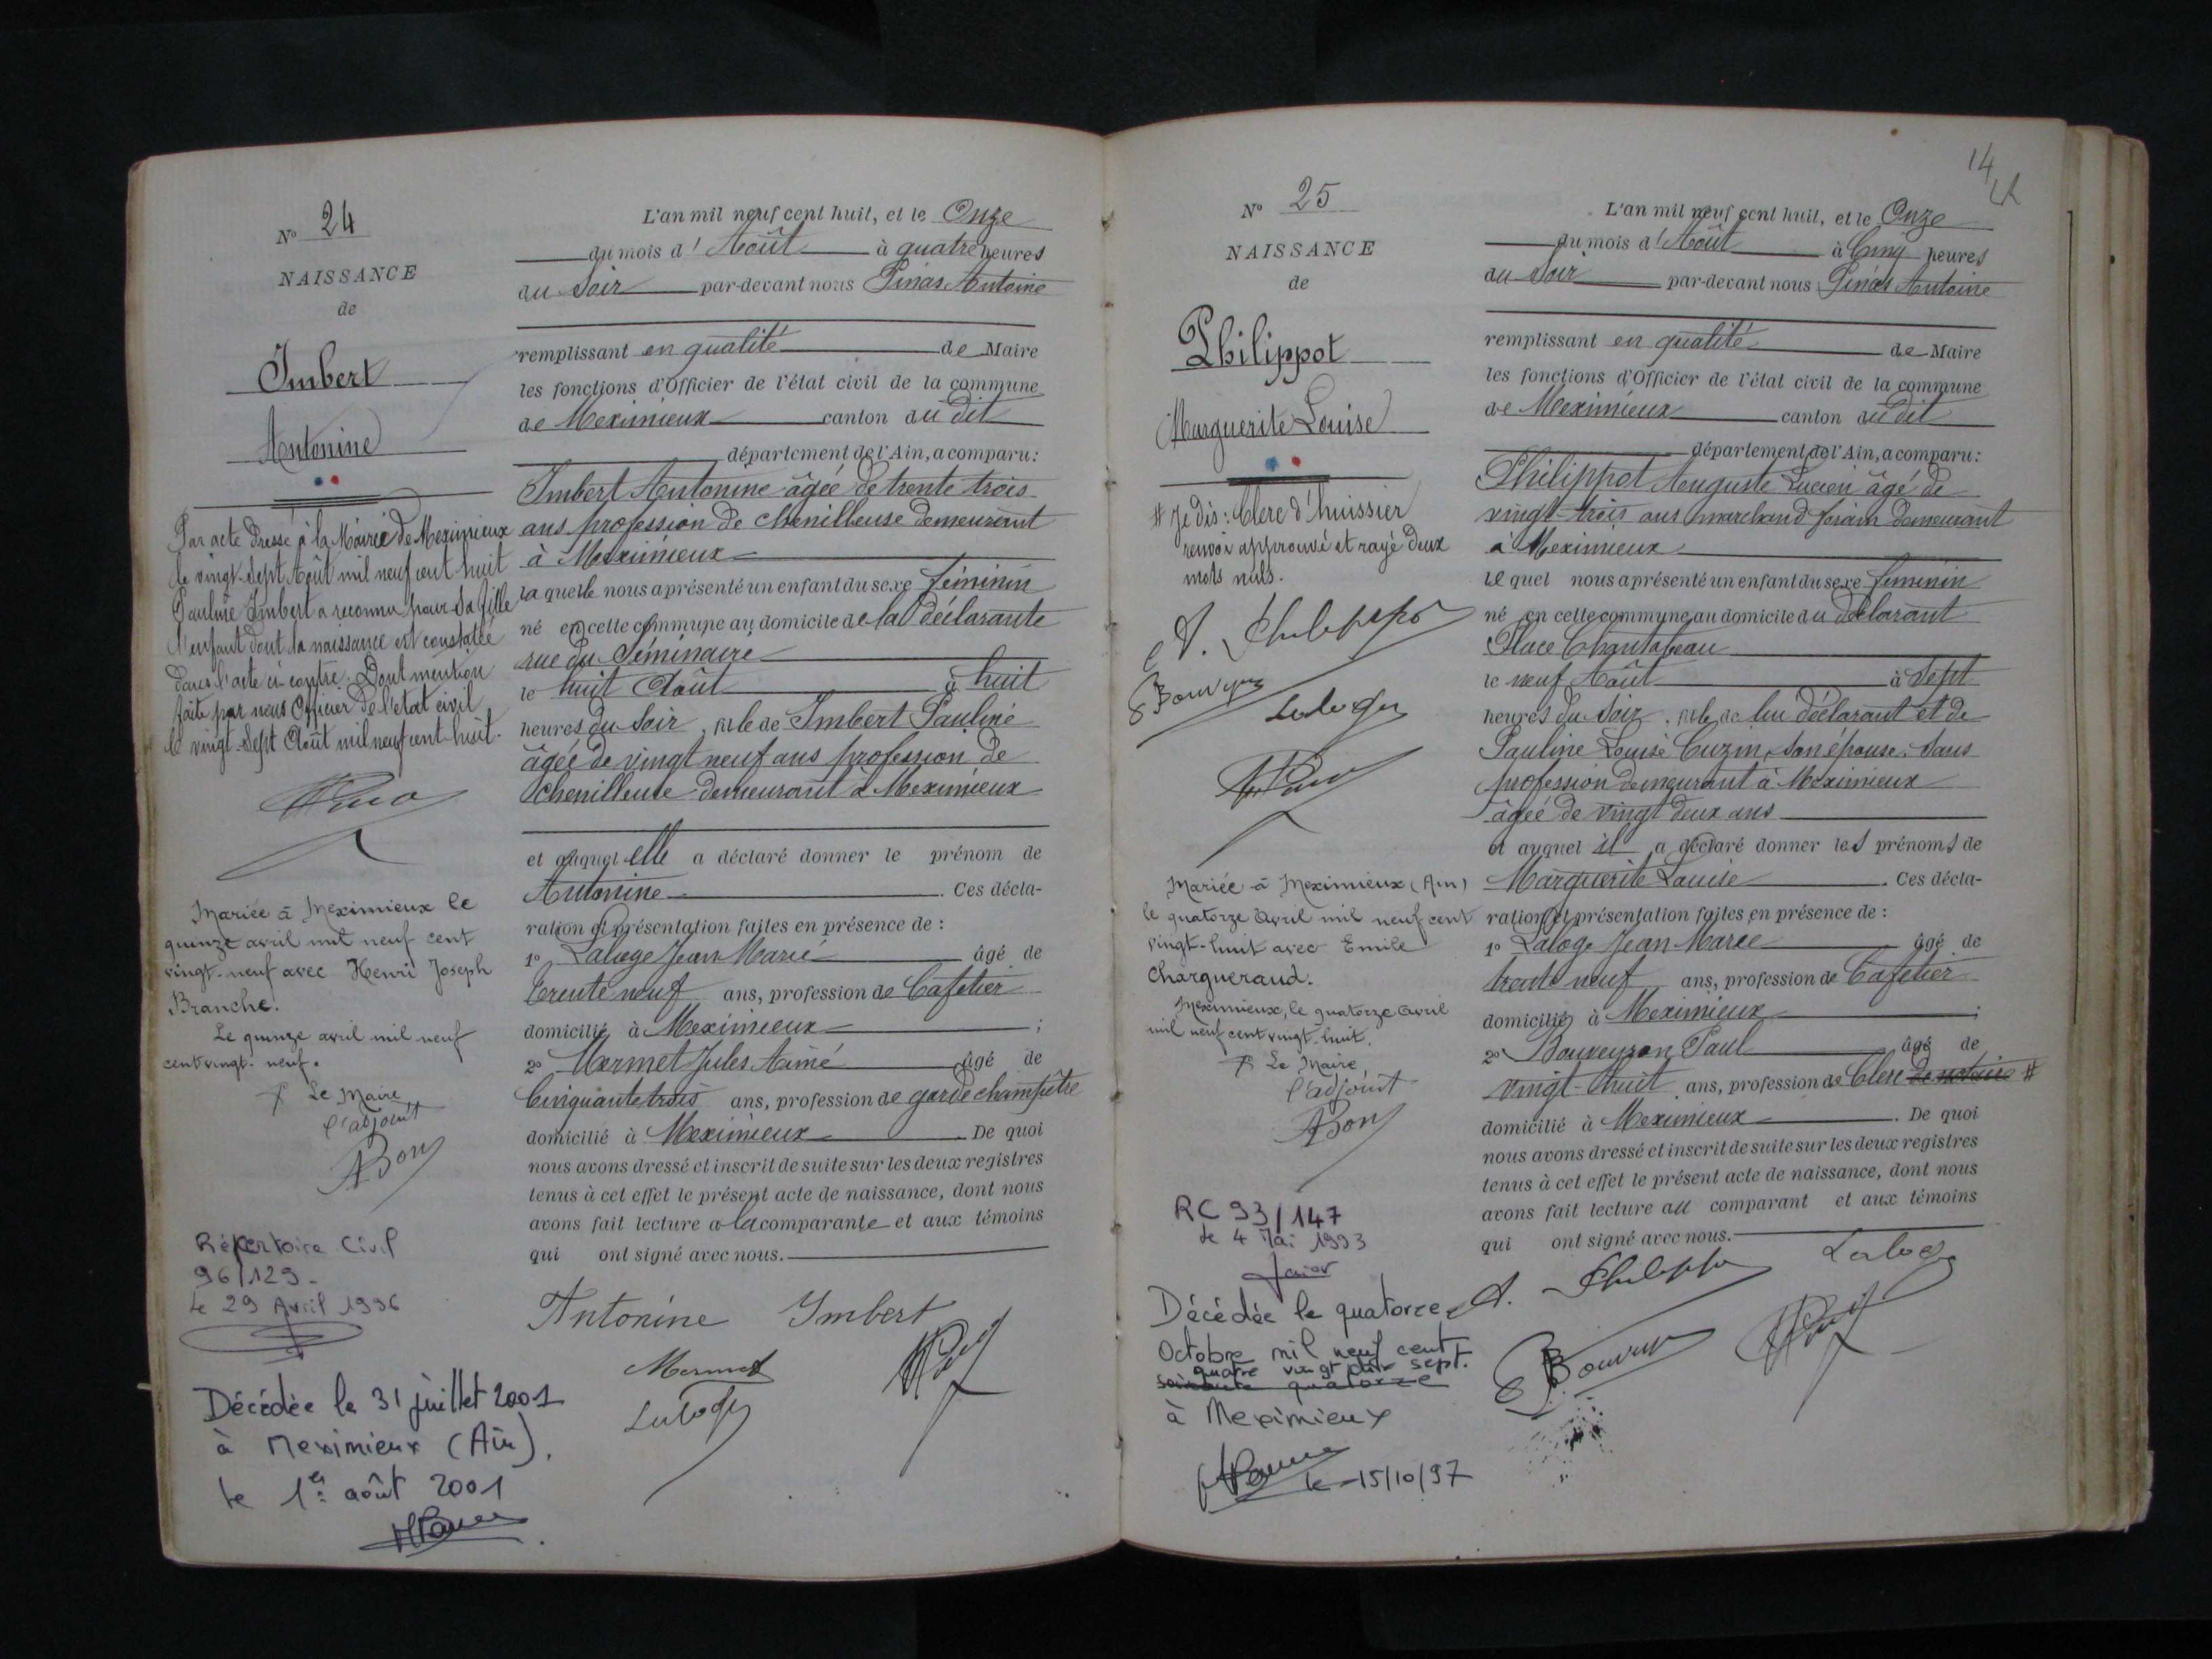 Nº 24
NAISSANCE
de
Imbert
Antonine
Par acte dressé à la Mairie de Meximieux
le vingt-sept Août mil neuf cent huit
Pauline Imbert a reconnu pour sa fille
l'enfant dont la naissance est constatée
dans l'acte ci-contre. Dont mention
faite par nous Officier de l'état civil
le vingt-sept Août mil neuf cent huit.
Mariée à Meximieux le
quinze avril mil neuf cent
vingt-neuf avec Henri Joseph
Branche.
Le quinze avril mil neuf
cent vingt-neuf.
Le Maire
l'adjoint
ABon
Répertoire Civil
96/129-
le 29 Avril 1996
Décédée le 31 juillet 2001
à Meximieux (Ain).
le 1er août 2001
L'an mil neuf cent huit, et le Onze
du mois d'Août à quatre heures
du Soir par-devant nous Pinas Antoine
remplissant en qualité de Maire
les fonctions d'Officier de l'état civil de la commune
de Meximieux canton du dit
département de l'Ain, a comparu:
Imbert Antonine âgée de trente trois
ans profession de chenilleuse demeurant
à Meximieux
laquelle nous a présenté un enfant du sexe féminin
né en cette commune au domicile de la déclarante
rue du Séminaire
le huit Août à huit
heures du Soir, fille de Imbert Pauline
âgée de vingt neuf ans profession de
chenilleuse demeurant à Meximieux
et auquel elle a déclaré donner le prénom de
Antonine. Ces décla-
ration et présentation faites en présence de :
1º Laloge Jean Marie âgé de
trente neuf ans, profession de Cafetier
domicilié à Meximieux ;
2º Mermet Jules Aimé âgé de
Cinquante trois ans, profession de garde champêtre
domicilié à Meximieux. De quoi
nous avons dressé et inscrit de suite sur les deux registres
tenus à cet effet le présent acte de naissance, dont nous
avons fait lecture à la comparante et aux témoins
qui ont signé avec nous.
Antonine Imbert
Mermet
Laloge
14
Nº 25
NAISSANCE
de
Philippot
Marguerite Louise
# Je dis: Clerc d'huissier
renvoi approuvé et rayé deux
mots nuls.
A. Philippot
Bouveyron
Laloge
Mariée à Meximieux (Ain)
le quatorze Avril mil neuf cent
vingt-huit avec Emile
Chargueraud.
Meximieux, le quatorze Avril
mil neuf cent vingt-huit.
Le Maire
l'adjoint
ABon
RC 93/147
le 4 Mai 1993
Décédée le quatorze
Octobre mil neuf cent
quatre vingt dix sept.
soixante quatorze
à Meximieux
le 15/10/97
L'an mil neuf cent huit, et le Onze
du mois d'Août à Cinq heures
du Soir par-devant nous Pinas Antoine
remplissant en qualité de Maire
les fonctions d'Officier de l'état civil de la commune
de Meximieux canton du dit
département de l'Ain, a comparu:
Philippot Auguste Lucien âgé de
vingt-trois ans marchand forain demeurant
à Meximieux
lequel nous a présenté un enfant du sexe féminin
né en cette commune au domicile du déclarant
Place Chantabeau
le neuf Août à Sept
heures du Soir, fille de lui déclarant et de
Pauline Louise Cuzin, son épouse, sans
profession demeurant à Meximieux
âgée de vingt deux ans
et auquel il a déclaré donner les prénoms de
Marguerite Louise. Ces décla-
ration et présentation faites en présence de :
1º Laloge Jean Marie âgé de
trente neuf ans, profession de Cafetier
domicilié à Meximieux ;
2º Bouveyron Paul âgé de
vingt-huit ans, profession de Clerc de notaire #
domicilié à Meximieux. De quoi
nous avons dressé et inscrit de suite sur les deux registres
tenus à cet effet le présent acte de naissance, dont nous
avons fait lecture au comparant et aux témoins
qui ont signé avec nous.
A. Philippot Laloge
Bouveyron